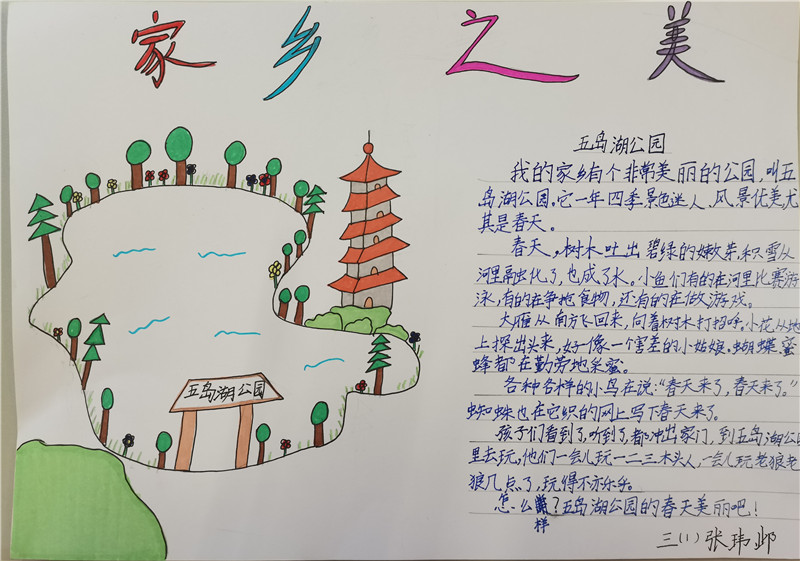 家乡之美
五岛湖公园
五岛湖公园
我的家乡有个非常美丽的公园,叫五
岛湖公园。它一年四季景色迷人、风景优美尤
其是春天。
春天,树木吐出碧绿的嫩芽,积雪从
河里融化了,也成了水。小鱼们有的在河里比赛游
泳,有的在争抢食物,还有的在做游戏。
大雁从南方飞回来,向着树木打招呼,小花从地
上探出头来,好像一个害羞的小姑娘。蝴蝶、蜜
蜂都在勤劳地采蜜。
各种各样的小鸟在说:“春天来了,春天来了。”
蜘蛛也在它织的网上写下春天来了。
孩子们看到了,听到了,都冲出家门,到五岛湖公园
里去玩,他们一会儿玩一二三木头人,一会儿玩老狼老
狼几点了,玩得不亦乐乎。
怎么样?五岛湖公园的春天美丽吧!
三(1)张玮邺